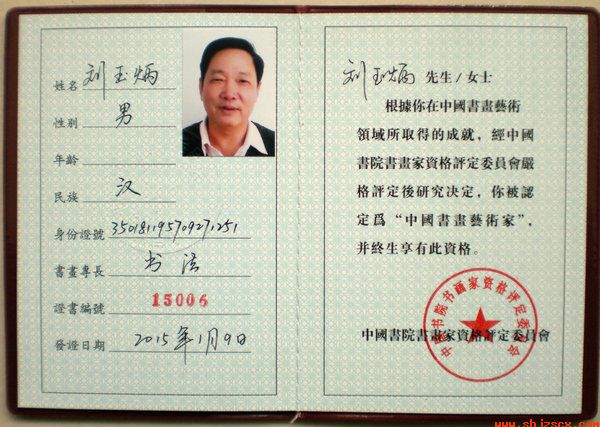 姓名 刘玉炳
性别 男
年齡
民族 汉
身份證號 350181195709271251
書畫專長 书法
證書編號 15006
發證日期 2015年1月9日
刘玉炳 先生/女士
根據你在中國書畫藝術
領域所取得的成就，經中國
書院書畫家資格評定委員會嚴
格評定後研究決定，你被認
定爲“中國書畫藝術家”，
并終生享有此資格。
中国书院书画家资格评定委员会
中國書院書畫家資格評定委員會
www.shjzscx.com